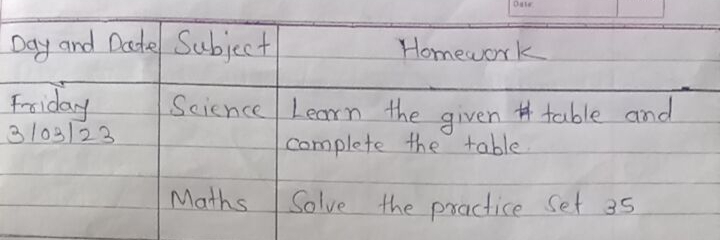 Date
Day and Date Subject Homework
Friday Science Learn the given table and
3/03/23 complete the table.
Maths Solve the practice Set 35